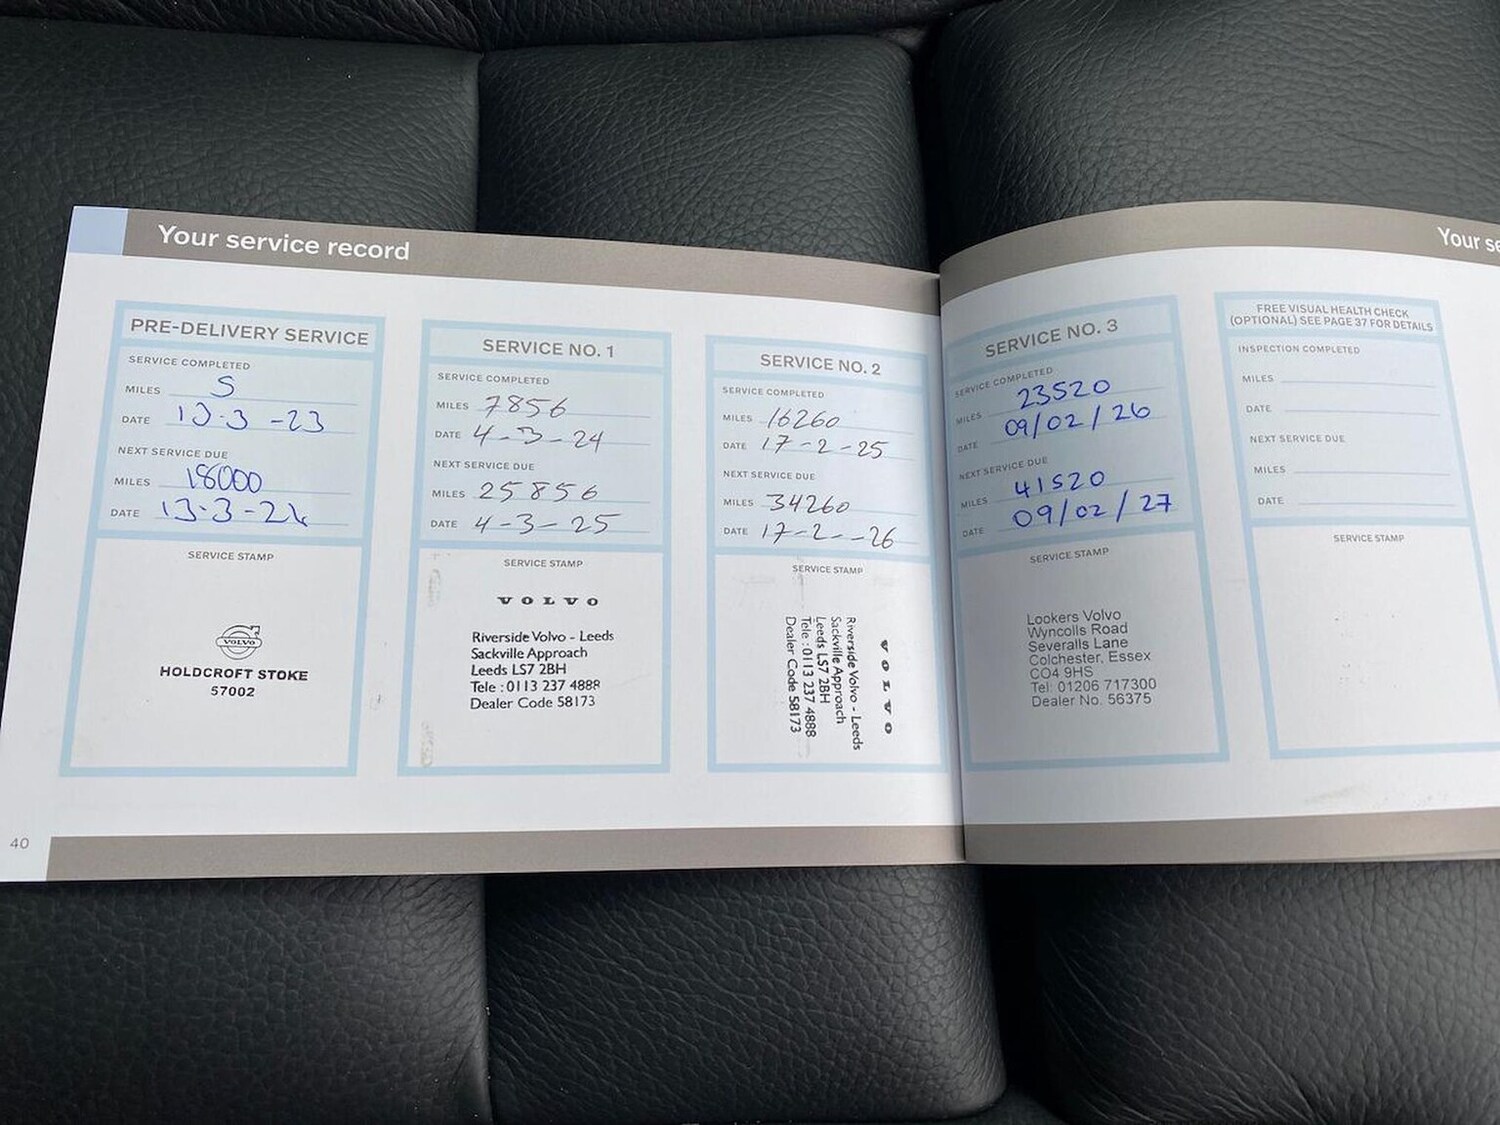 Your service record
PRE-DELIVERY SERVICE
SERVICE COMPLETED
MILES 5
DATE 13-3-23
NEXT SERVICE DUE
MILES 18000
DATE 13-3-24
SERVICE STAMP
VOLVO
HOLDCROFT STOKE
57002
SERVICE NO. 1
SERVICE COMPLETED
MILES 7856
DATE 4-3-24
NEXT SERVICE DUE
MILES 25856
DATE 4-3-25
SERVICE STAMP
VOLVO
Riverside Volvo - Leeds
Sackville Approach
Leeds LS7 2BH
Tele : 0113 237 4888
Dealer Code 58173
SERVICE NO. 2
SERVICE COMPLETED
MILES 16260
DATE 17-2-25
NEXT SERVICE DUE
MILES 34260
DATE 17-2--26
SERVICE STAMP
VOLVO
Riverside Volvo - Leeds
Sackville Approach
Leeds LS7 2BH
Tele : 0113 237 4888
Dealer Code 58173
40
Your se
SERVICE NO. 3
SERVICE COMPLETED
MILES 23520
DATE 09/02/26
NEXT SERVICE DUE
MILES 41520
DATE 09/02/27
SERVICE STAMP
Lookers Volvo
Wyncolls Road
Severalls Lane
Colchester, Essex
CO4 9HS
Tel: 01206 717300
Dealer No. 56375
FREE VISUAL HEALTH CHECK
(OPTIONAL) SEE PAGE 37 FOR DETAILS
INSPECTION COMPLETED
MILES
DATE
NEXT SERVICE DUE
MILES
DATE
SERVICE STAMP